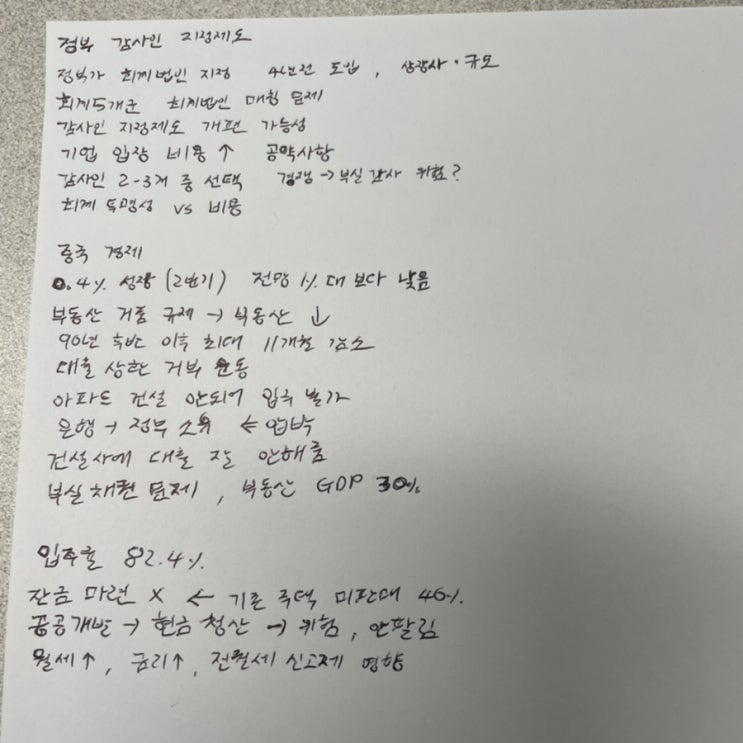 정부 감사인 지정제도
정부가 회계법인 지정 4년전 도입, 상장사·규모
회계 5개군 회계법인 매칭 문제
감사인 지정제도 개편 가능성
기업 입장 비용↑ 공약사항
감사인 2-3개 중 선택 경쟁→부실감사 위험?
회계 투명성 vs 비용
중국 경제
0.4% 성장 (2분기) 전망 1%대 보다 낮음
부동산 거품 규제→부동산↓
90년 후반 이후 최대 11개월 감소
대출 상환 거부 운동
아파트 건설 안되어 입주 불가
은행→정부 소유 ⇐압박
건설사에 대출 잘 안해줌
부실채권 문제, 부동산 GDP 30%
입주율 82.4%
잔금 마련 X ← 기존 주택 미판매 40%
공공개발→현금청산→위험, 안팔림
월세↑, 금리↑, 전월세 신고제 영향